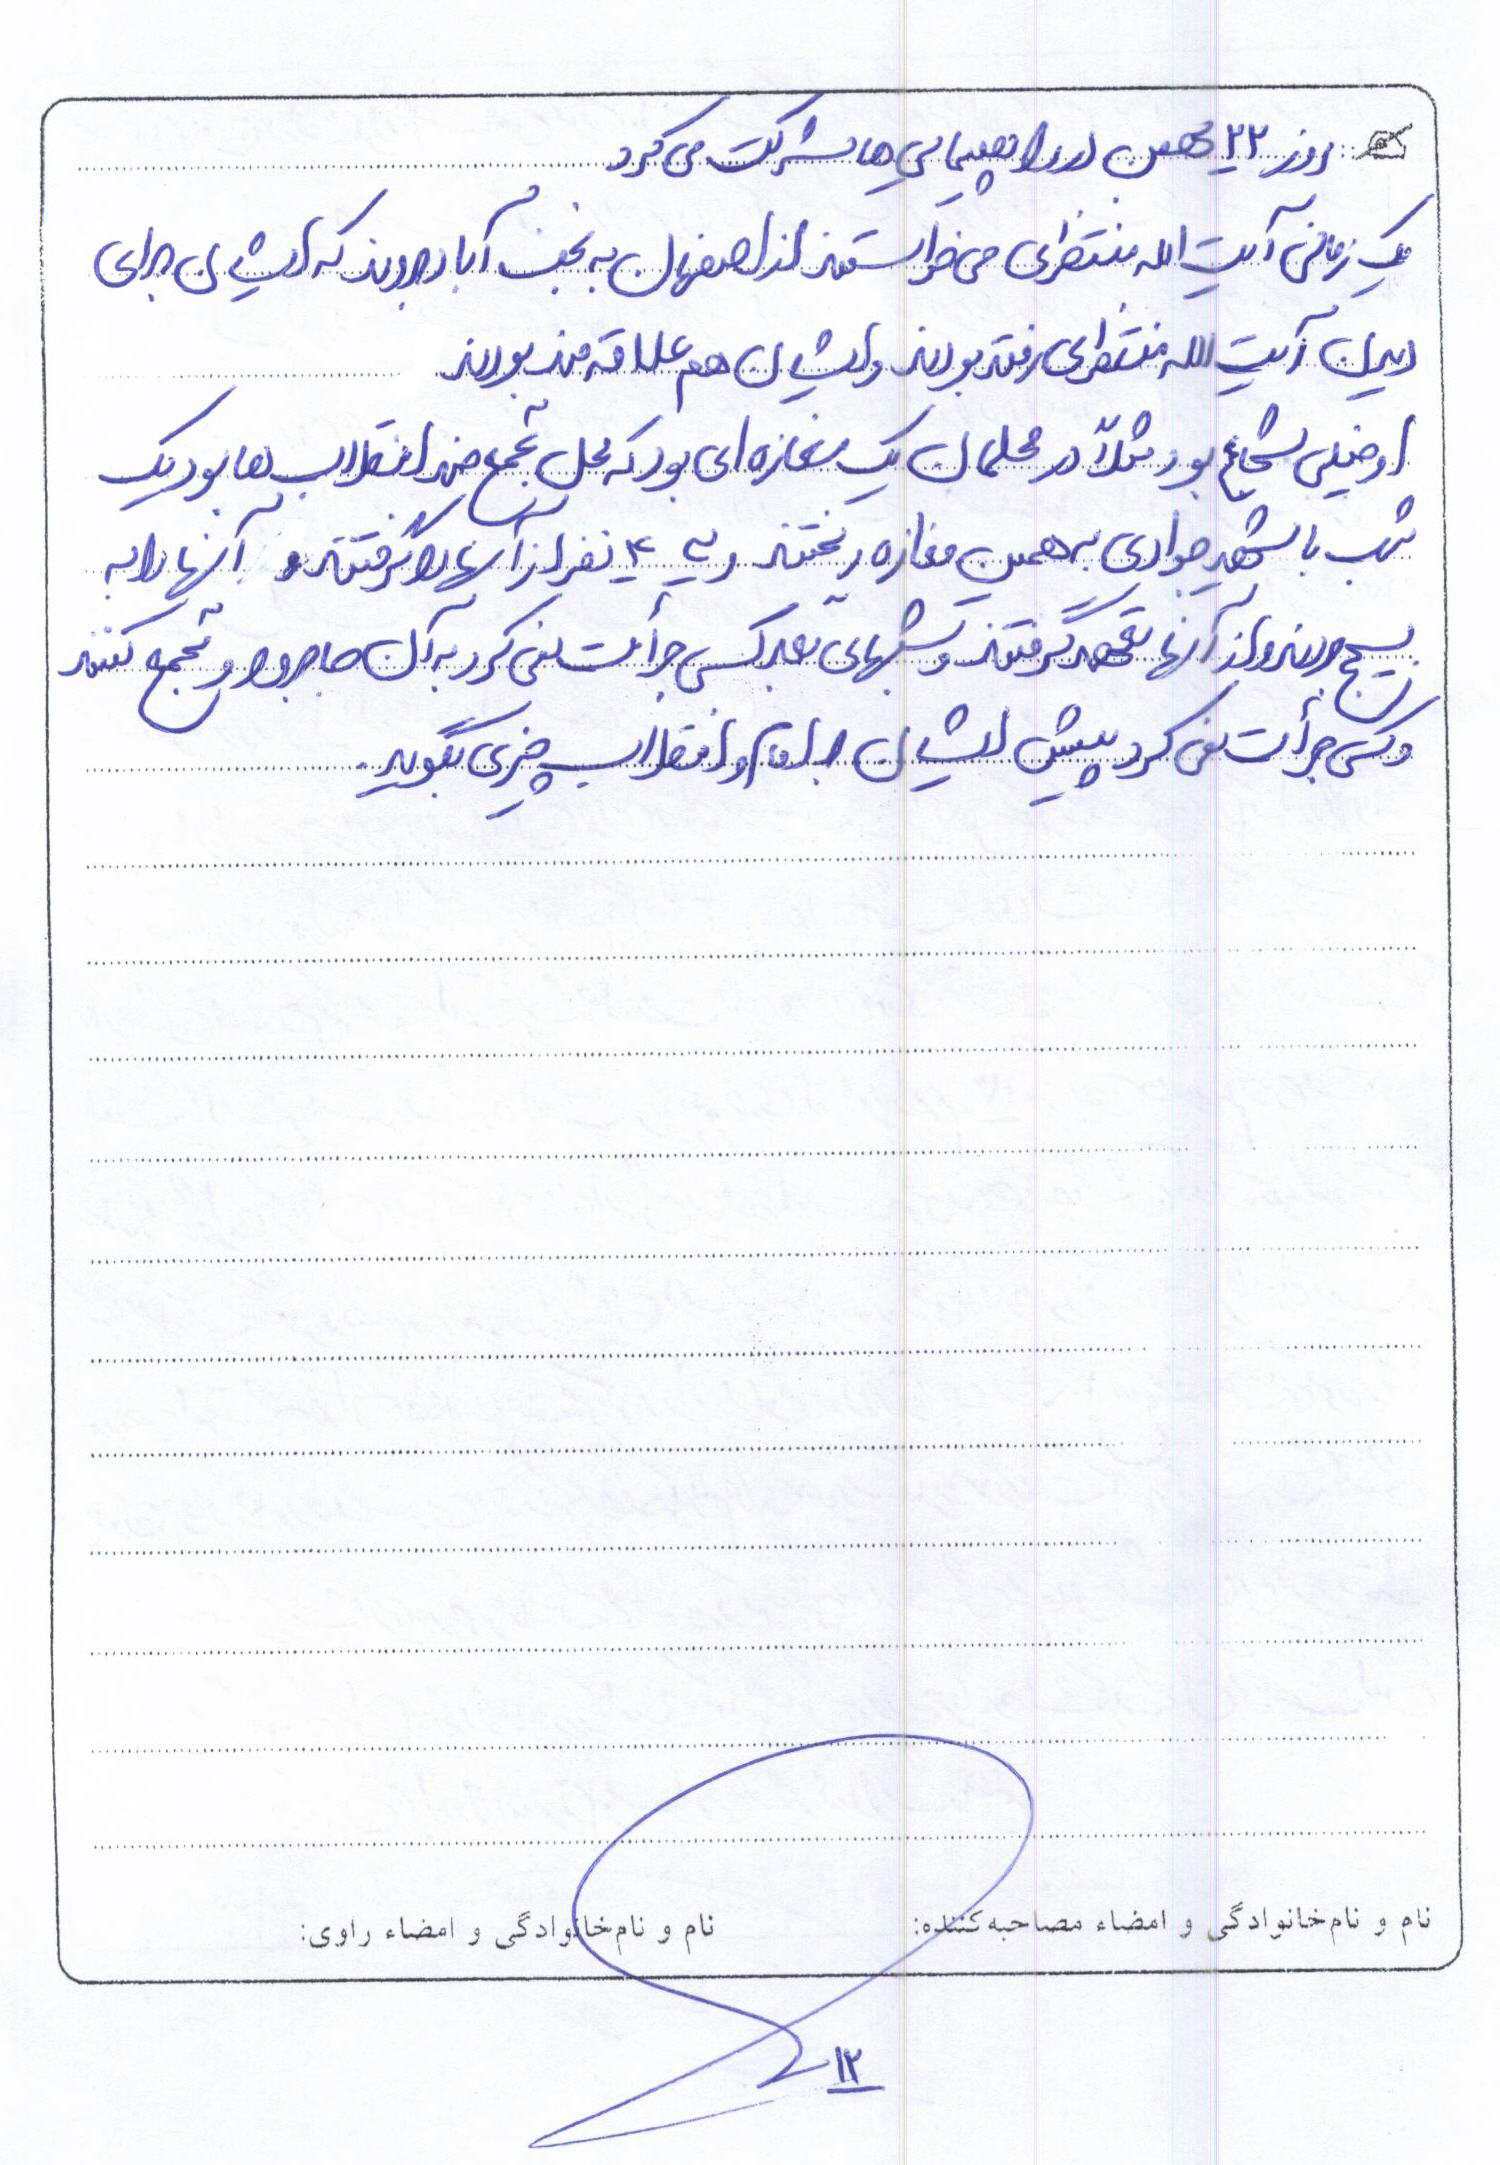 روز ۲۲ بهمن در راهپیمایی ها شرکت می کرد
یک زمانی آیت الله منتظری می خواستند از اصفهان به نجف آباد بروند که ایشان برای
دیدن آیت الله منتظری رفته بودند و ایشان هم علاقه مند بودند
او خیلی شجاع بود مثلاً در محلمان یک مغازه ای بود که محل تجمع ضد انقلاب ها بود یک
شب با شهید جوادی به همین مغازه ریختند و ۴ نفر از آنها را گرفتند و آنها را به
بسیج بردند و از آنها تعهد گرفتند و شبهای بعد کسی جرأت نمی کرد به آن جا برود و تجمع کنند
و کسی جرأت نمی کرد پیش ایشان به امام و انقلاب چیزی بگوید.
نام و نام خانوادگی و امضاء مصاحبه کننده:
نام و نام خانوادگی و امضاء راوی:
۱۲